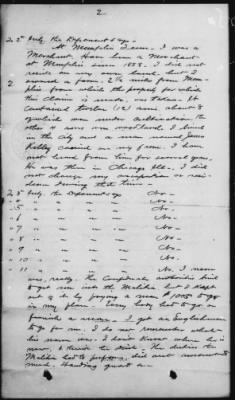 2
2. 2nd Intg. the Deponent says
At Memphis Tenn. I was a
Merchant. Have been a Merchant
at Memphis since 1858. I did not
reside on my own land, but I
owned a farm 2 1/2 miles from Mem-
phis from which the property for which
this claim is made, was taken. It
contained twelve (12) acres, about 8
of which was under cultivation the
other 4 acres was woodland. I lived
in the City and a man named James
Kelley carried on my farm. I have
not heard from him for several years.
He was then in Chicago Ills. I did
not change my occupation or resi-
dence during that time.
2 3rd Intg. the Deponent says No
" 4 " " " " " No
" 5 " " " " " No
" 6 " " " " " No
" 7 " " " " " No
" 8 " " " " " No
" 9 " " " " " No
" 10 " " " " " No
" 11 " " " " " No. I never
was, really. The Confederate authorities tried
to get me into the Militia but I kept
out of it by paying a man $1000 to go
in my place. Every body had to go or
furnish a man. I got an Englishman
to go for me. I do not remember what
his name was. I don't know where he is
now. The duties the
Militia had to perform, did not amount to
much. Standing guard &c.